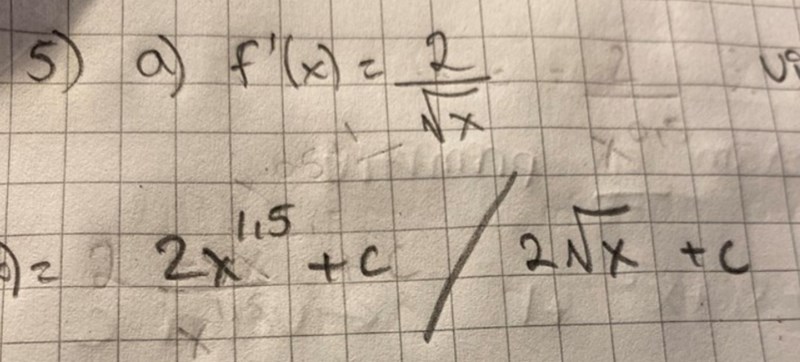 5) a) f'(x) = 2/√x
)= 2x^1,5 + c / 2√x + c